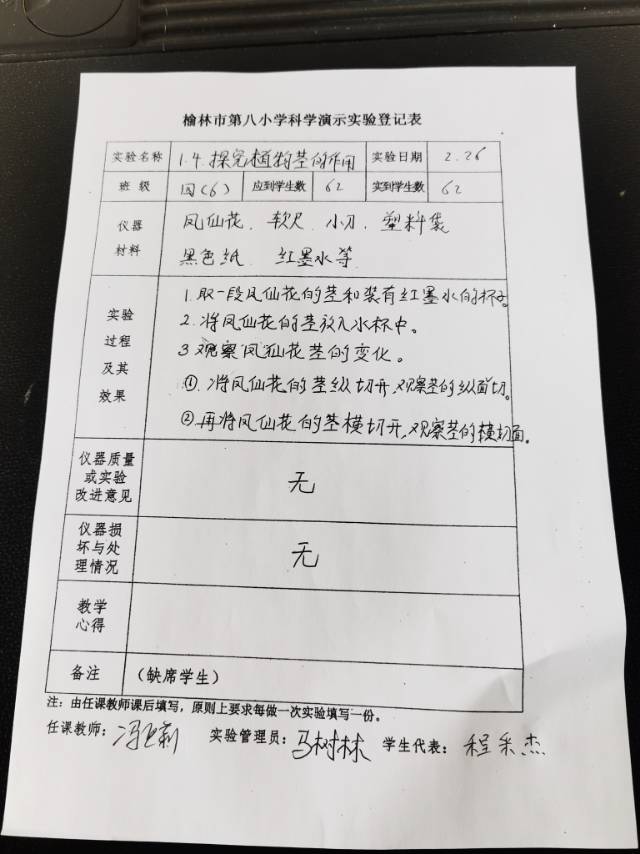 榆林市第八小学科学演示实验登记表
实验名称 1.4.探究植物茎的作用 实验日期 2.26
班 级 四(6) 应到学生数 62 实到学生数 62
仪器 凤仙花、软尺、小刀、塑料袋
材料 黑色纸 红墨水等
实验
过程
及其
效果
1.取一段凤仙花的茎和装有红墨水的杯子。
2.将凤仙花的茎放入水杯中。
3.观察凤仙花茎的变化。
①.将凤仙花的茎纵切开,观察茎的纵面切。
②.再将凤仙花的茎横切开,观察茎的横切面。
仪器质量
或实验
改进意见
无
仪器损
坏与处
理情况
无
教学
心得
备注 (缺席学生)
注:由任课教师课后填写,原则上要求每做一次实验填写一份。
任课教师:冯 莉 实验管理员:马树林 学生代表:程 杰